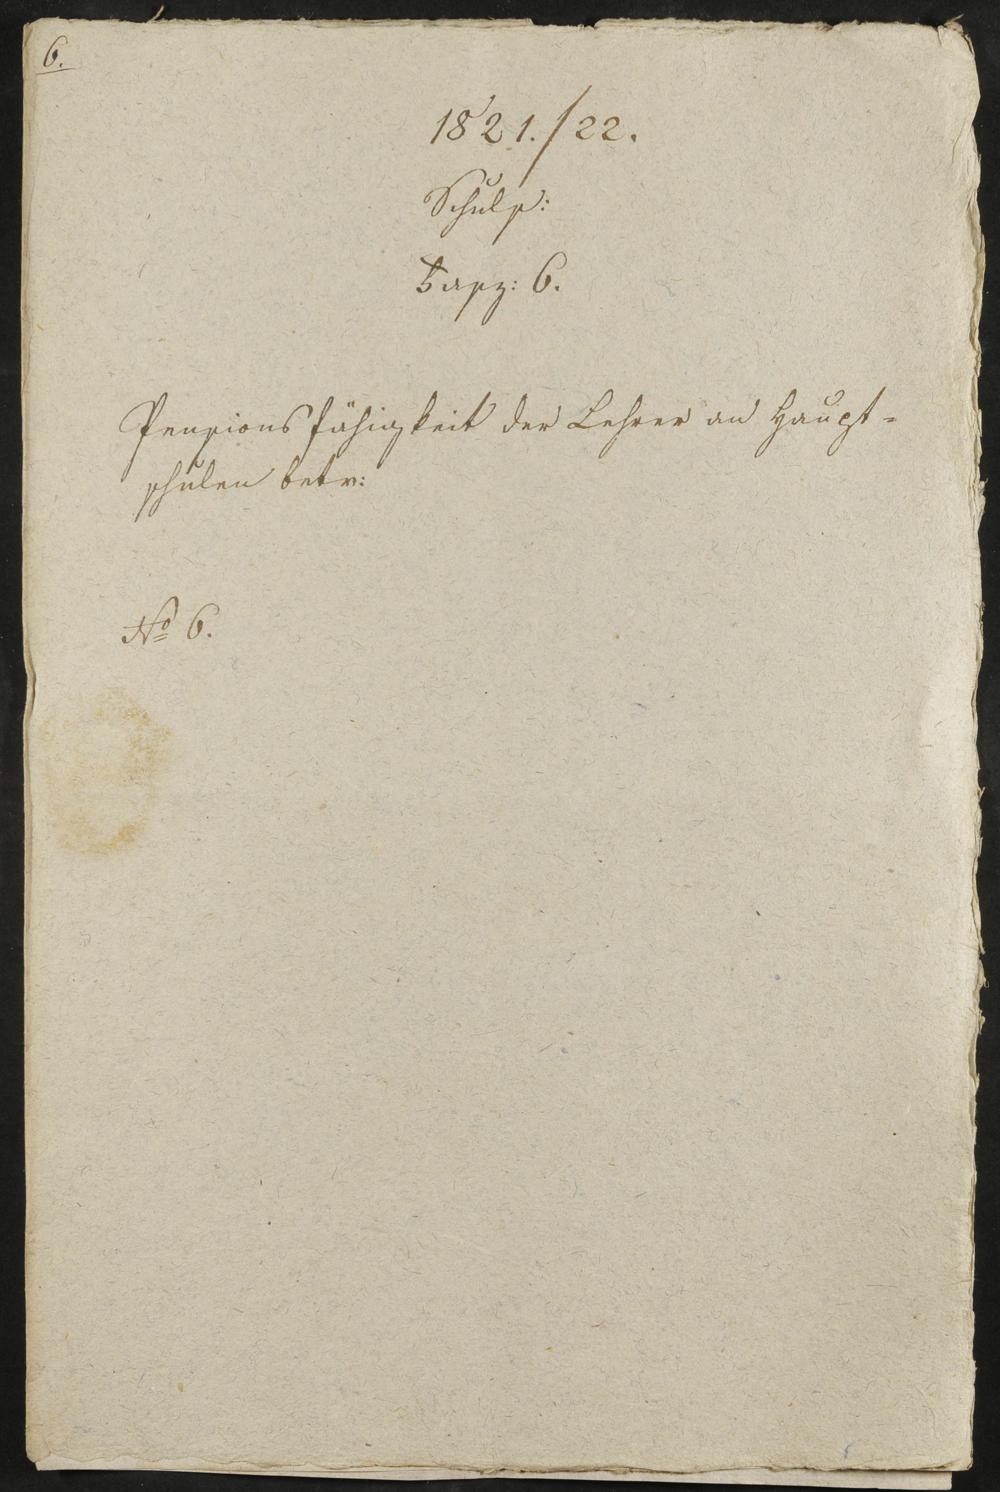 6.
1821./22.
Schuls:
Fasz: 6.
Pensionsfähigkeit der Lehrer an Haupt-
schulen betr:
No 6.